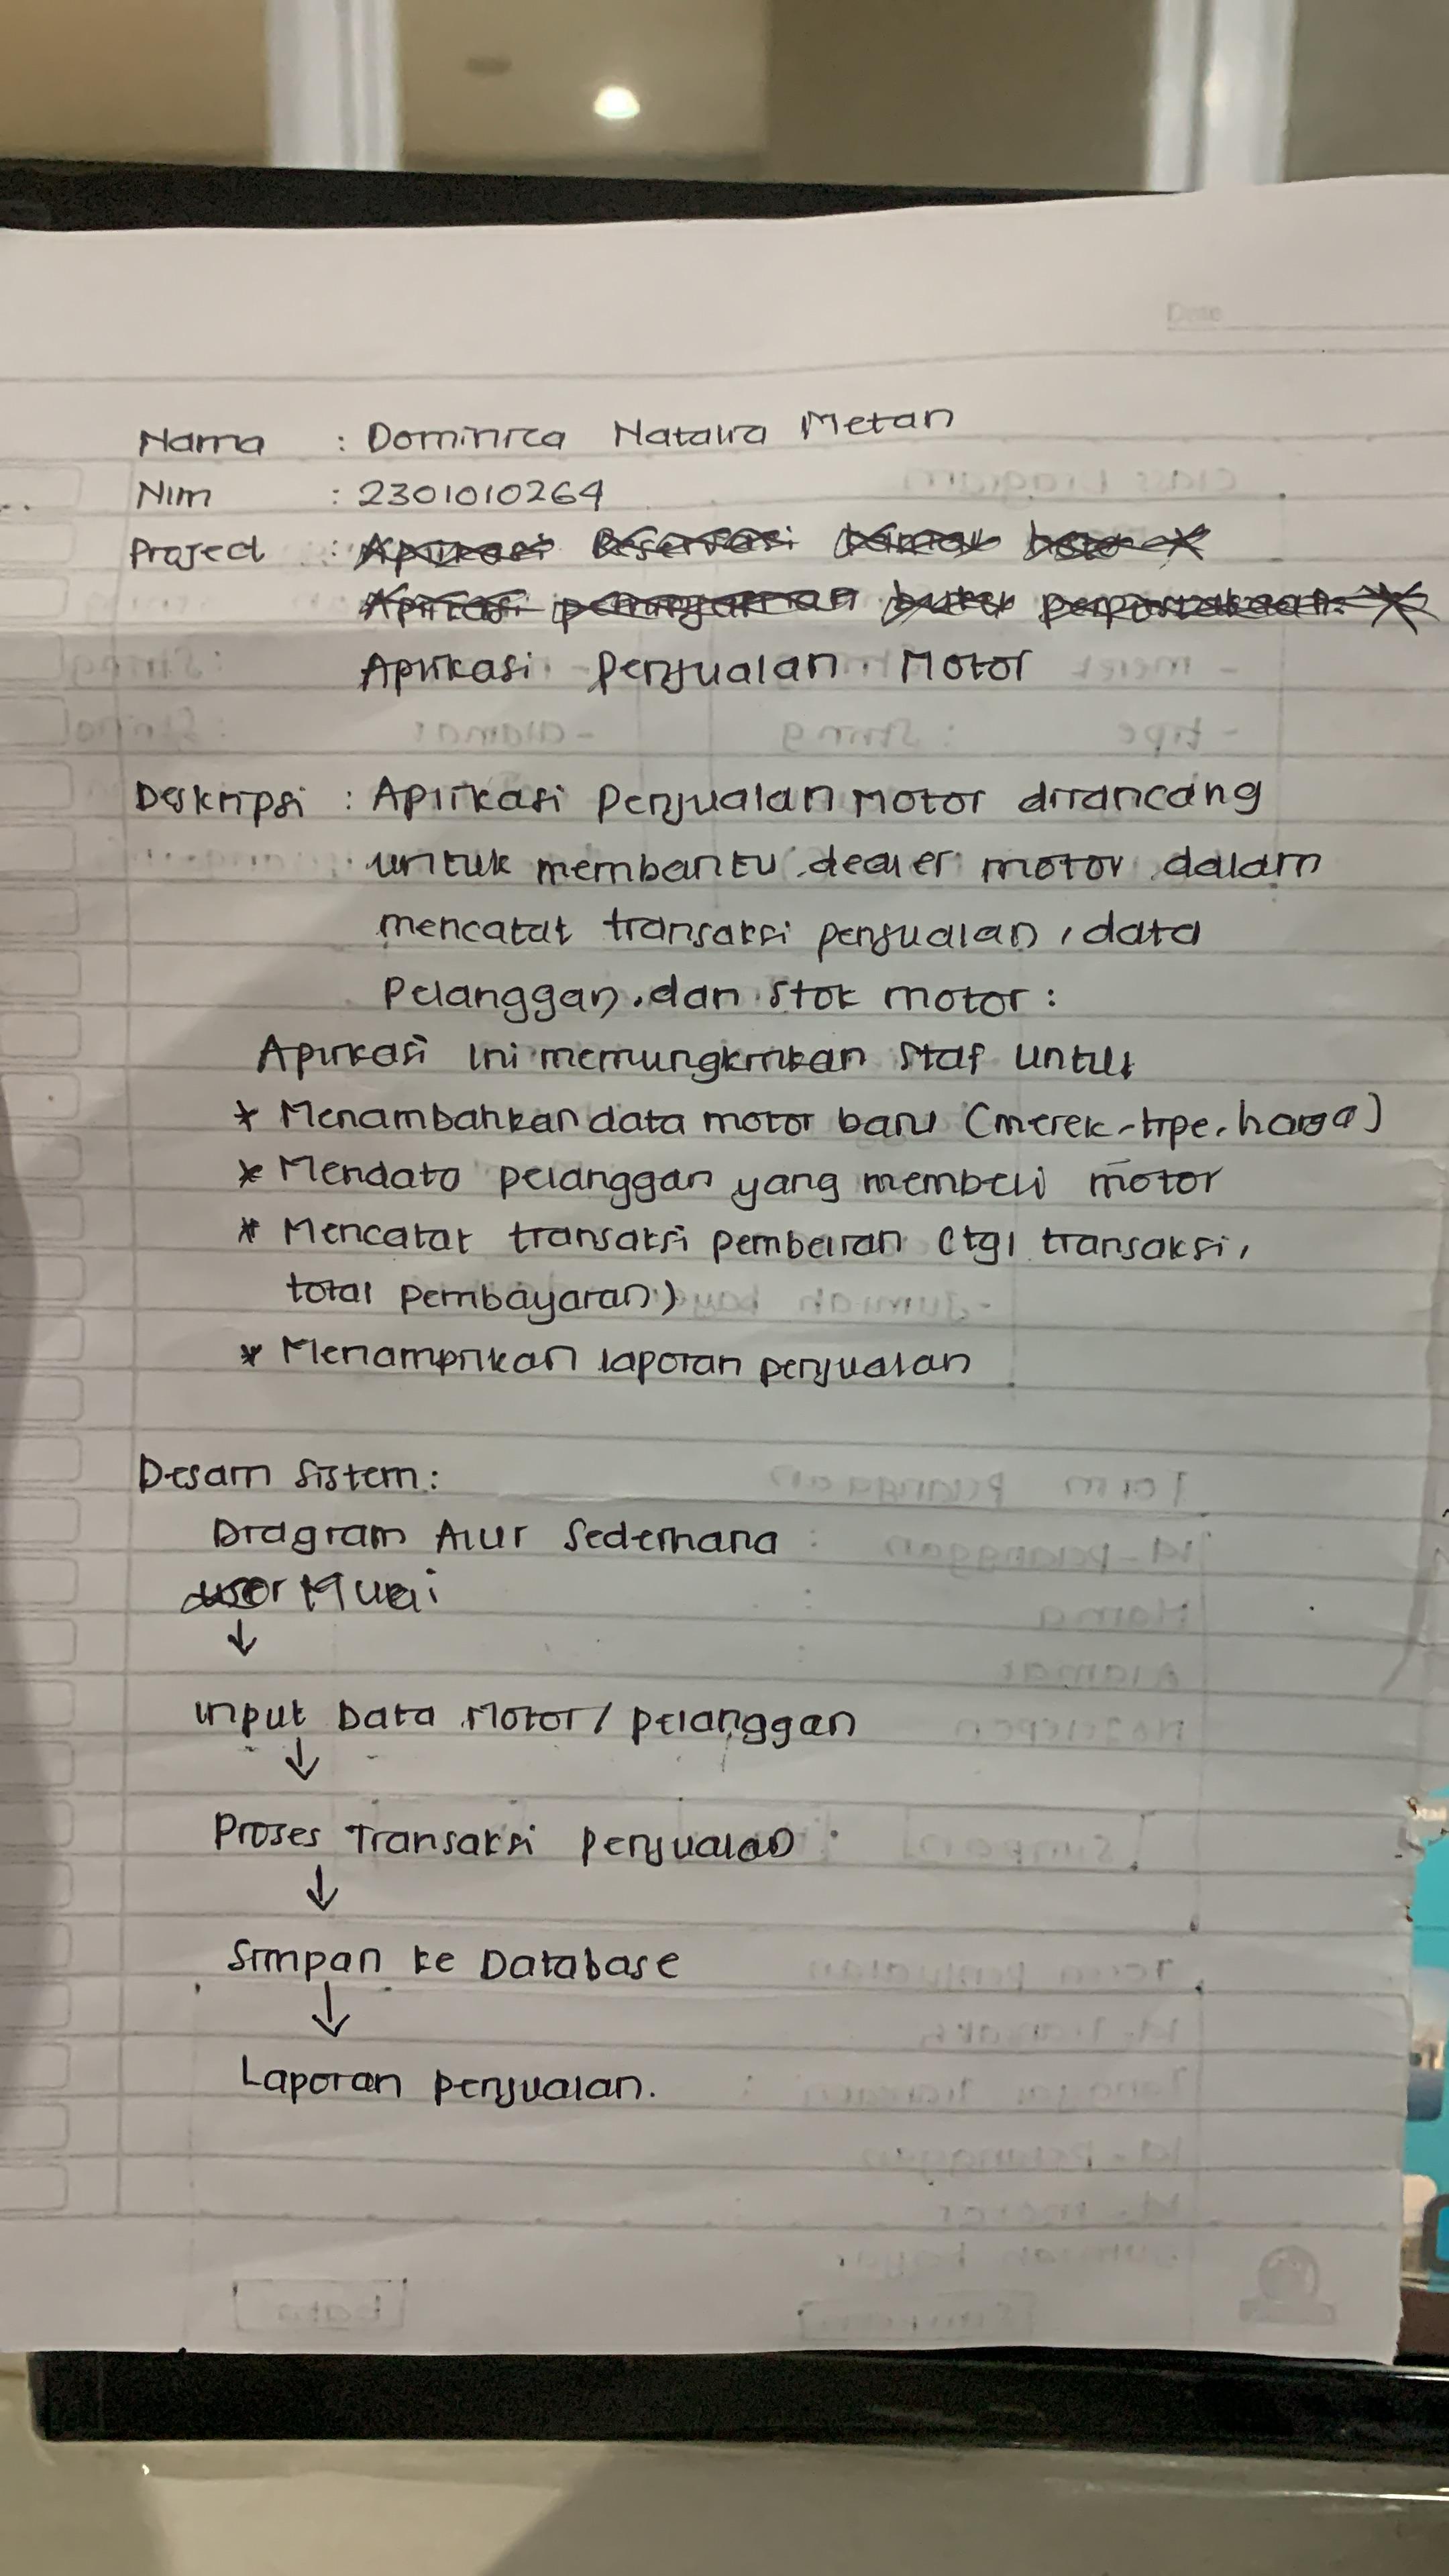 Date
Nama : Dominica Natalia Metan
Nim : 2301010264
Project : Aplikasi Reservasi kamar hotel
Aplikasi peminjaman buku perpustakaan.
Aplikasi Penjualan Motor
Deskripsi : Aplikasi Penjualan Motor dirancang
untuk membantu dealer motor dalam
mencatat transaksi penjualan, data
Pelanggan, dan stok motor :
Aplikasi ini memungkinkan staf untuk
* Menambahkan data motor baru (merek, tipe, harga)
* Mendata pelanggan yang membeli motor
* Mencatat transaksi pembelian (tgl transaksi,
total pembayaran)
* Menampilkan laporan penjualan
Desain Sistem :
Diagram Alur Sederhana
Mulai
↓
Input Data Motor / Pelanggan
↓
Proses Transaksi Penjualan
↓
Simpan ke Database
↓
Laporan penjualan.